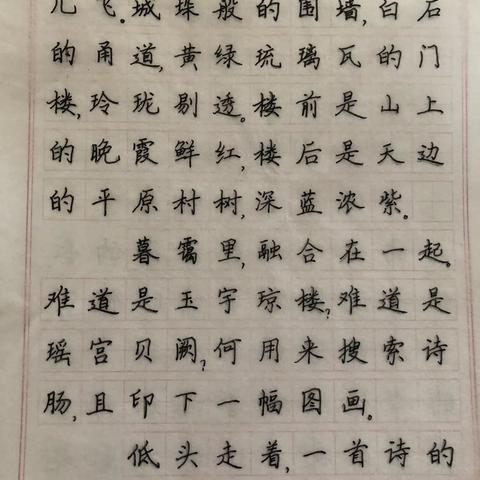 儿飞。城垛般的围墙,白石
的甬道,黄绿琉璃瓦的门
楼,玲珑剔透。楼前是山上
的晚霞鲜红,楼后是天边
的平原村树,深蓝浓紫。
暮霭里,融合在一起。
难道是玉宇琼楼?难道是
瑶宫贝阙?何用来搜索诗
肠,且印下一幅图画。
低头走着,一首诗的